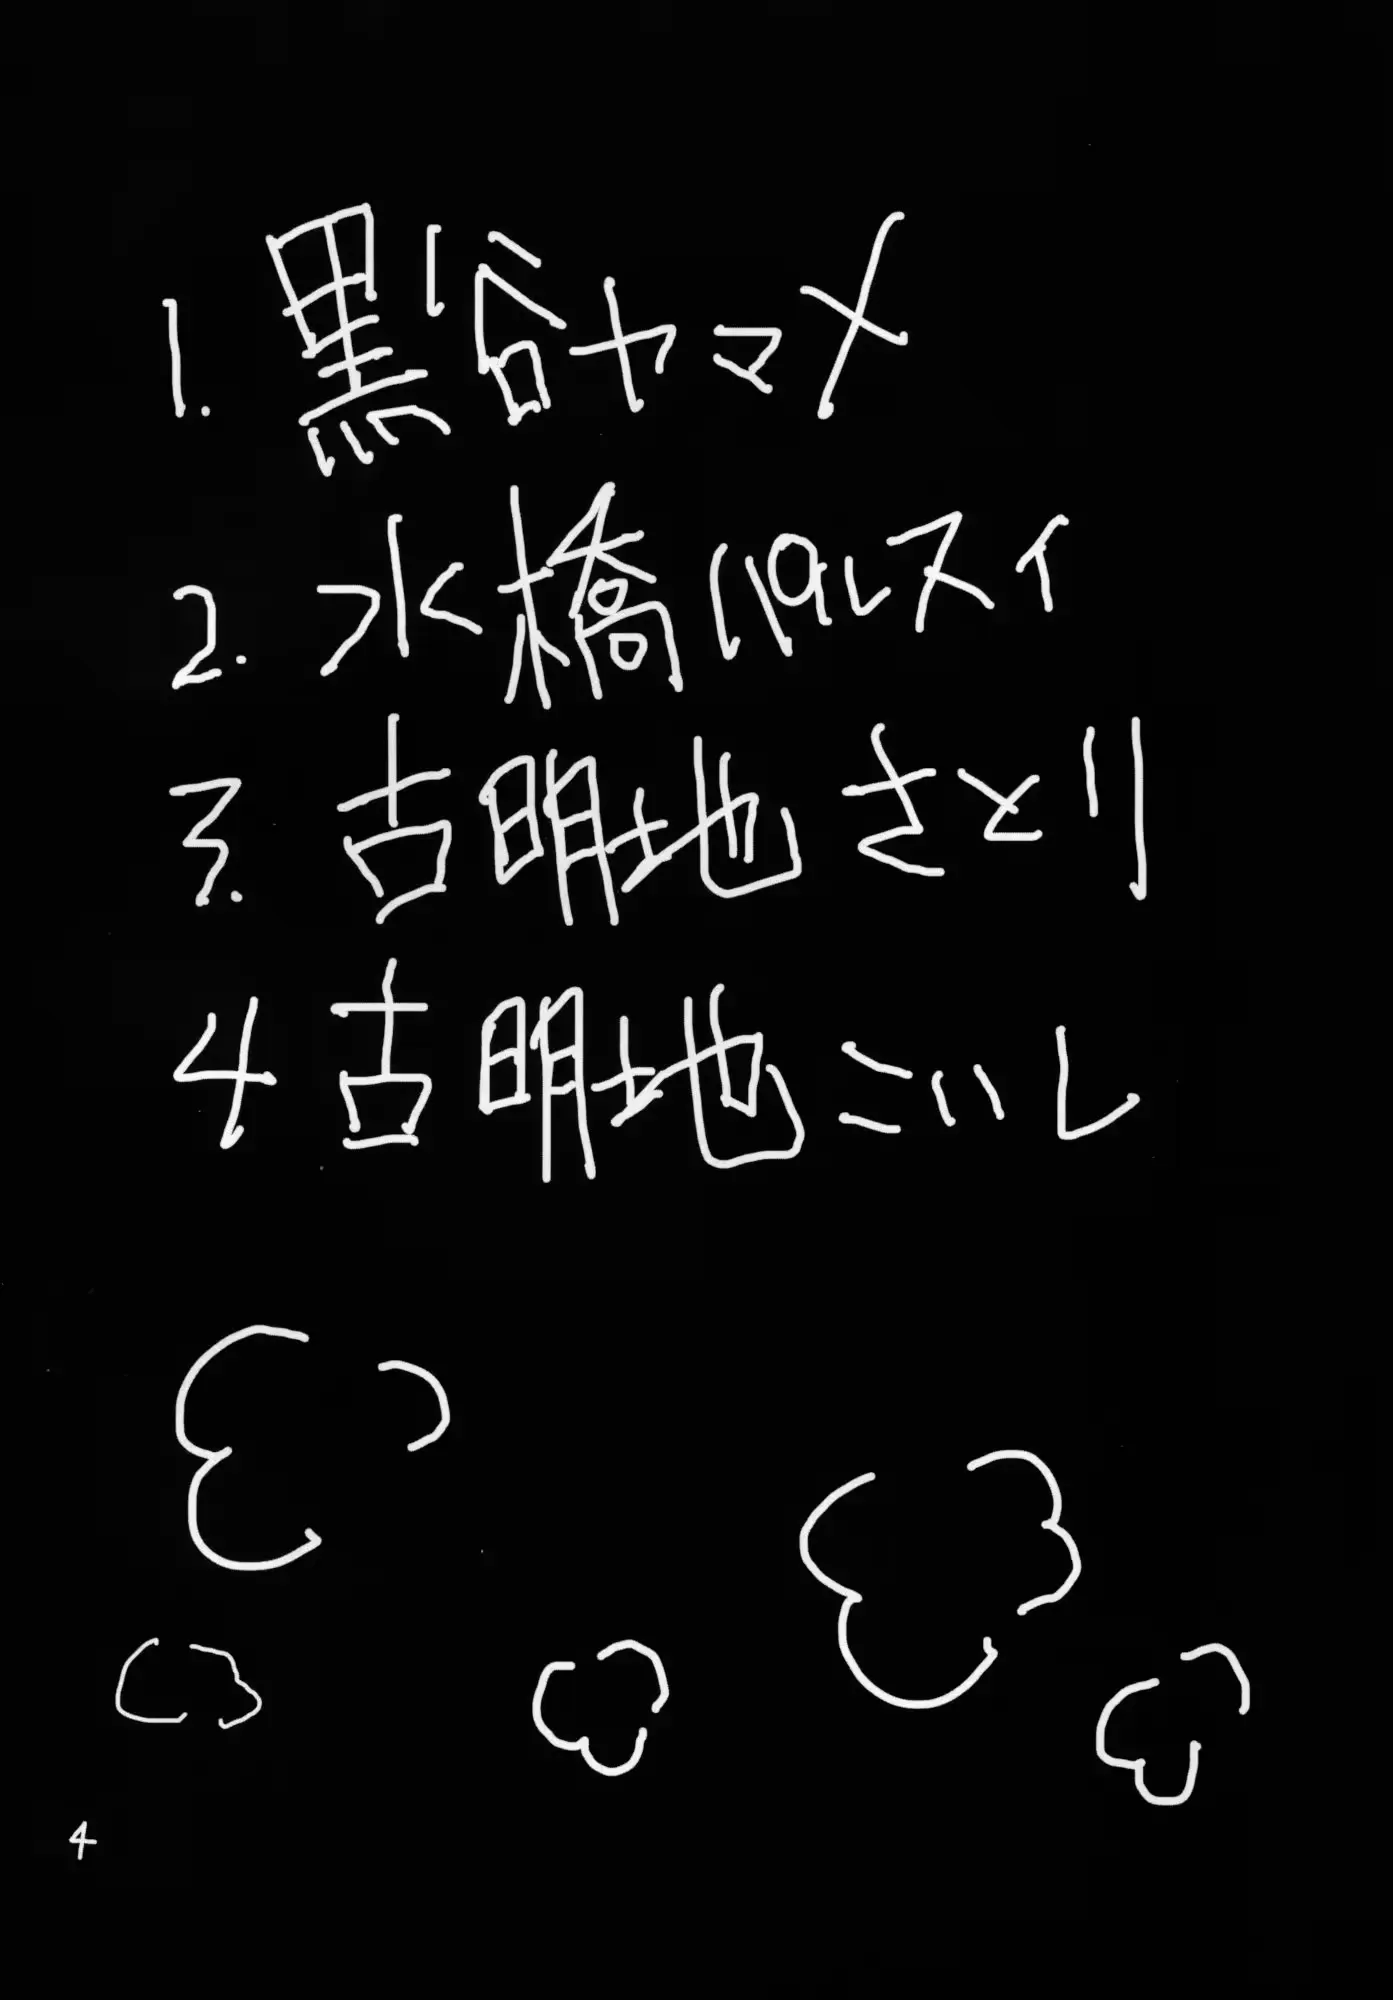 1. 黒谷ヤマメ
2. 水橋パルスイ
3. 古明地さとり
4 古明地こいし
4